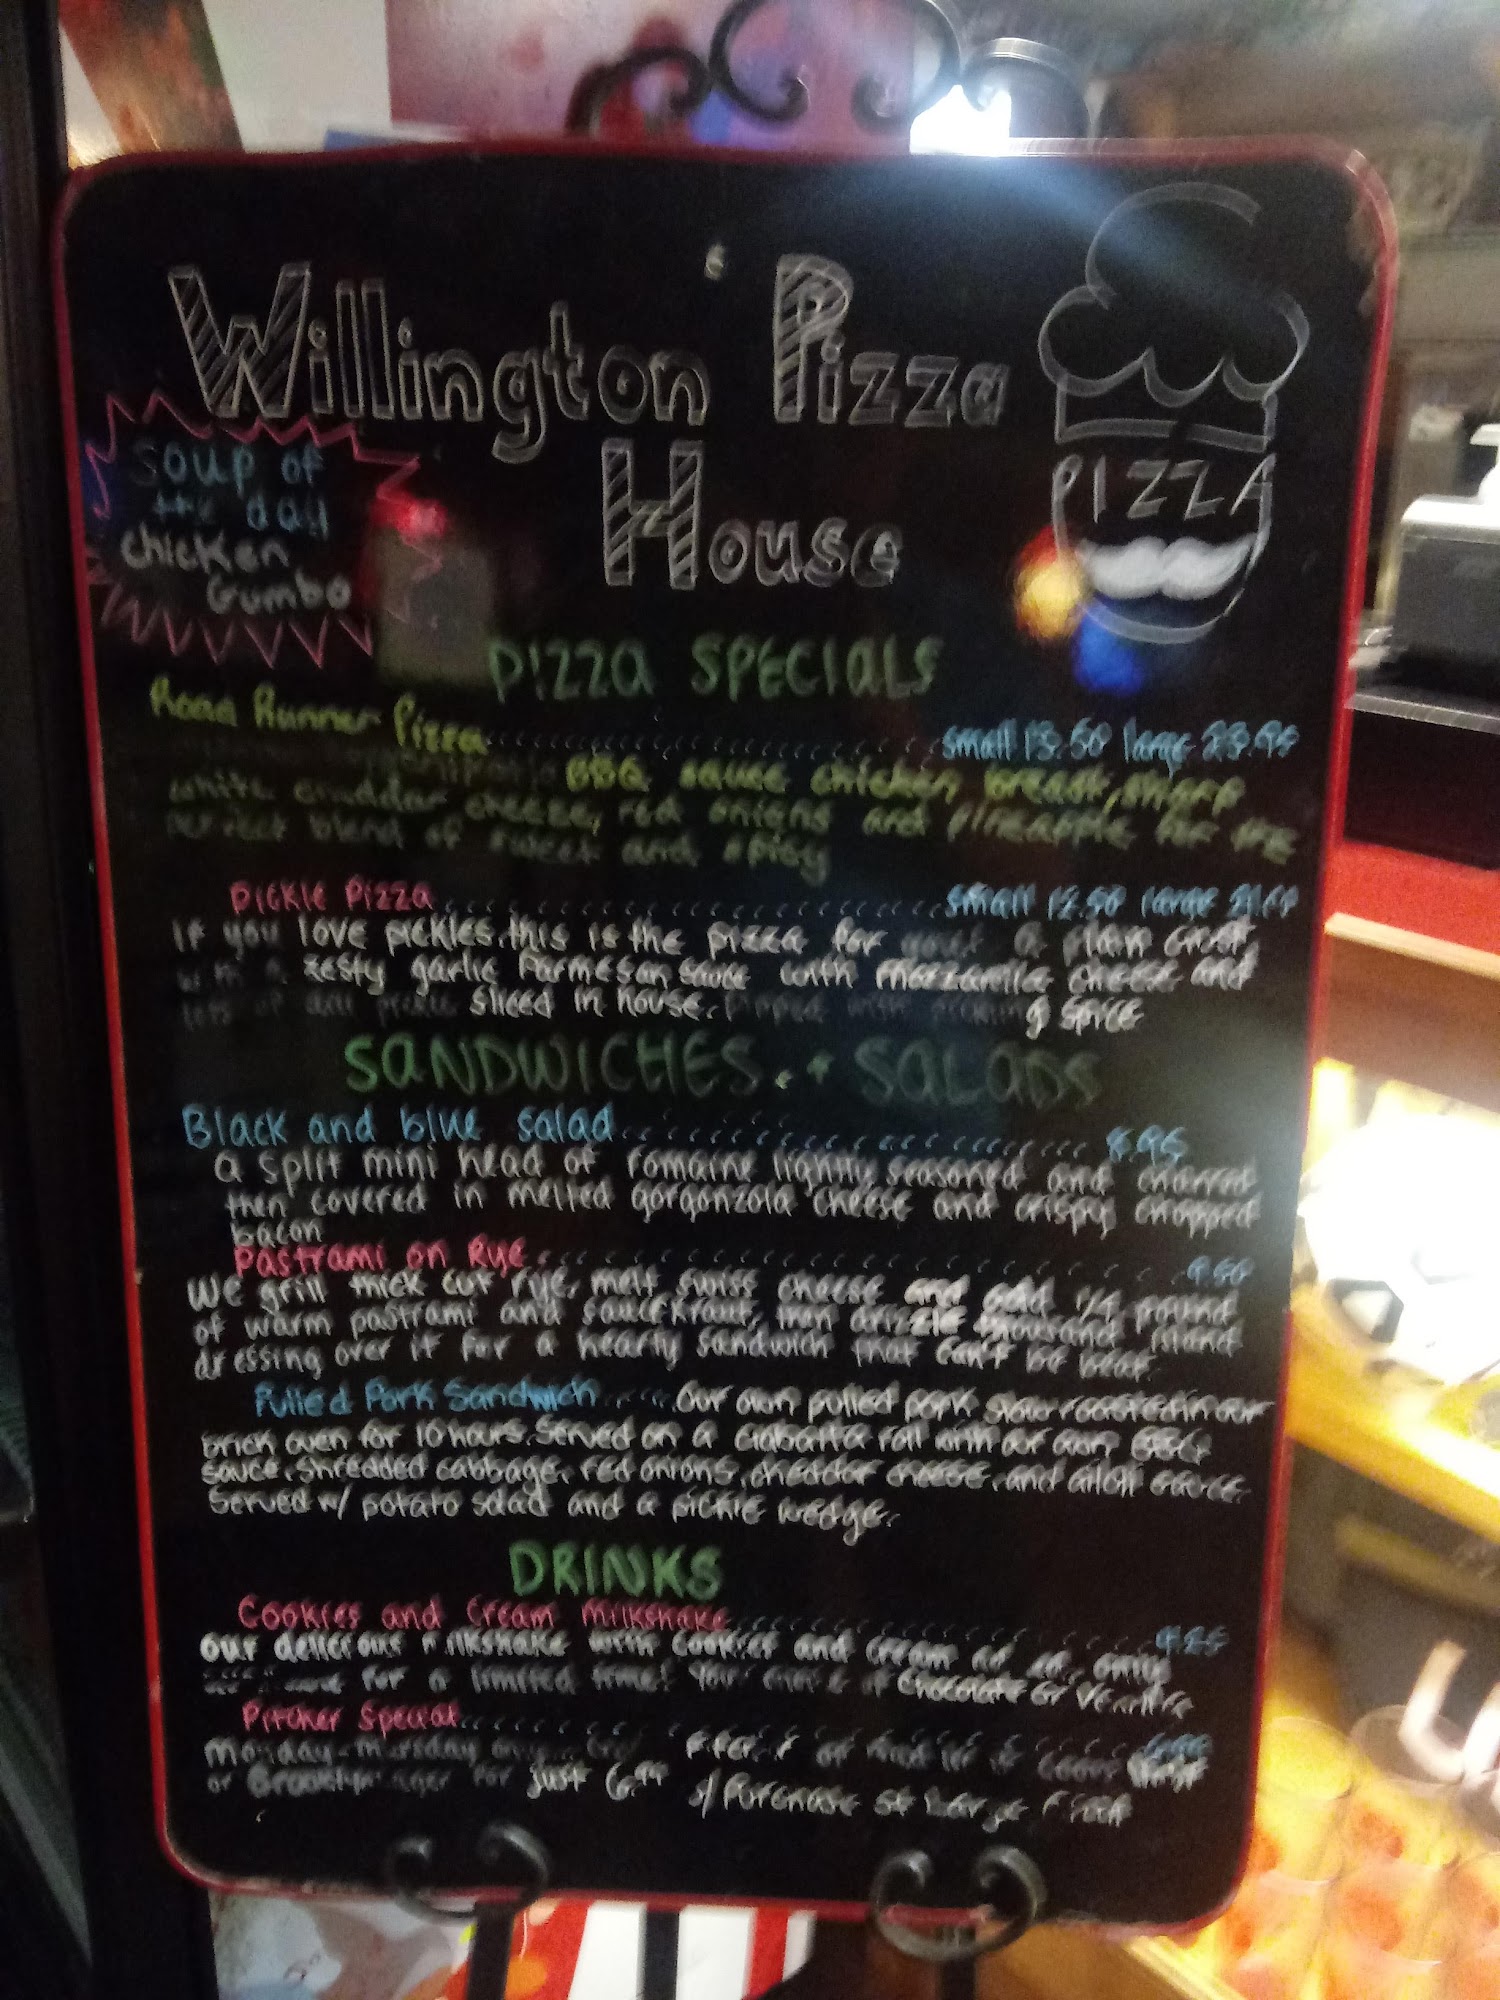 Willington Pizza
House
PIZZA
Soup of
the day
Chicken
Gumbo
Pizza Specials
Road Runner Pizza small 13.50 large 23.95
BBQ sauce chicken breast, sharp
white cheddar cheese, red onions and pineapple for the
perfect blend of sweet and spicy
Pickle Pizza small 12.50 large
If you love pickles, this is the pizza for you! A plain crust
with a zesty garlic Parmesan sauce with mozzarella cheese and
lots of dill pickle sliced in house. spice
Sandwiches + Salads
Black and blue salad 8.95
a split mini head of romaine lightly seasoned and charred
then covered in melted gorgonzola cheese and crispy chopped
bacon
Pastrami on Rye 9.50
We grill thick cut rye, melt swiss cheese and add 1/4 pound
of warm pastrami and sauerkraut, then drizzle thousand island
dressing over it for a hearty sandwich that can't be beat.
Pulled Pork Sandwich Our own pulled pork slow roasted in our
brick oven for 10 hours. Served on a ciabatta roll with our own BBQ
sauce, shredded cabbage, red onions, cheddar cheese, and aioli sauce.
Served w/ potato salad and a pickle wedge.
Drinks
Cookies and Cream Milkshake 4.25
Our delicious milkshake with cookies and cream only
for a limited time! Your choice of Chocolate or Vanilla
Pitcher Special
Monday-Thursday only of Coors
or Brooklyn for just 6.99 w/ Purchase of Large